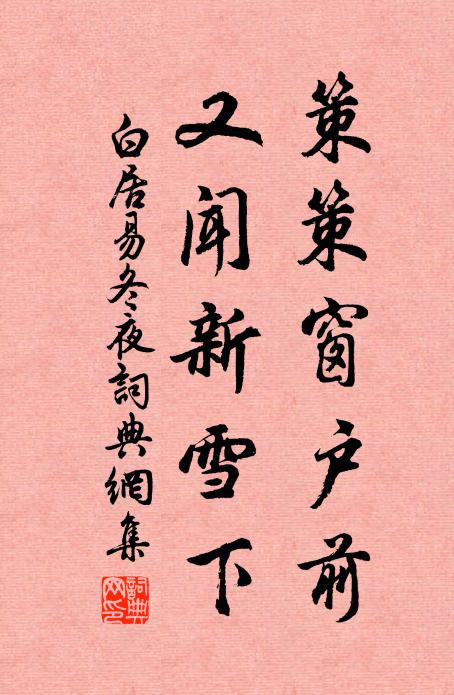 策策窗户前
又闻新雪下
白居易冬夜詞典網集
詞典
网印